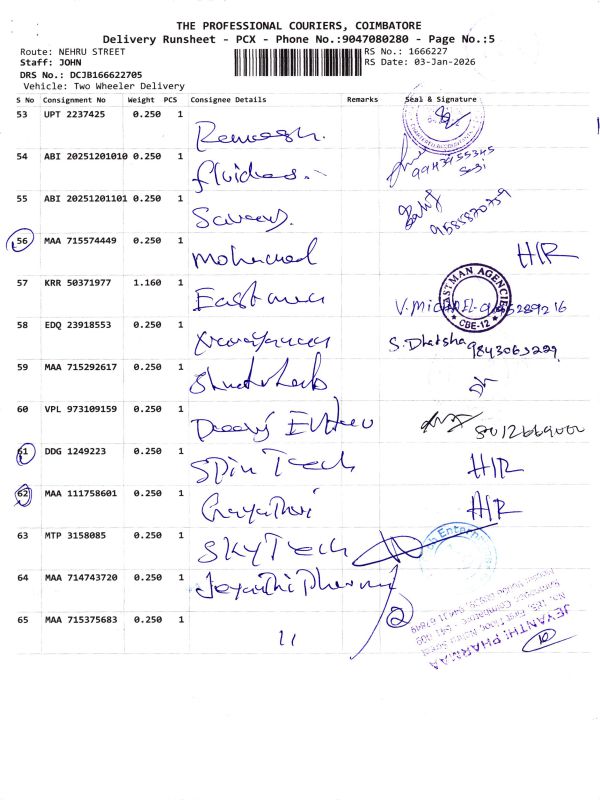 THE PROFESSIONAL COURIERS, COIMBATORE
Delivery Runsheet - PCX - Phone No.:9047080280 - Page No.:5
Route: NEHRU STREET
RS No.: 1666227
Staff: JOHN
RS Date: 03-Jan-2026
DRS No.: DCJB166622705
Vehicle: Two Wheeler Delivery
S No Consignment No Weight PCS Consignee Details Remarks Seal & Signature
53 UPT 2237425 0.250 1 Ramesh.
54 ABI 20251201010 0.250 1
9943955345
55 ABI 20251201101 0.250 1
9585870759
56 MAA 715574449 0.250 1 Mohamed H/R
57 KRR 50371977 1.160 1 Eastman
EASTMAN AGENCIES
CBE-12
58 EDQ 23918553 0.250 1 S. Dhatsha 9843063229
59 MAA 715292617 0.250 1
60 VPL 973109159 0.250 1
61 DDG 1249223 0.250 1 Spin Tech H/R
62 MAA 111758601 0.250 1 Gayathri H/R
63 MTP 3158085 0.250 1 SKY Tech
64 MAA 714743720 0.250 1 Jeyanthi Pharma
2
65 MAA 715375683 0.250 1 11
JEYANTHI PHARMA
10